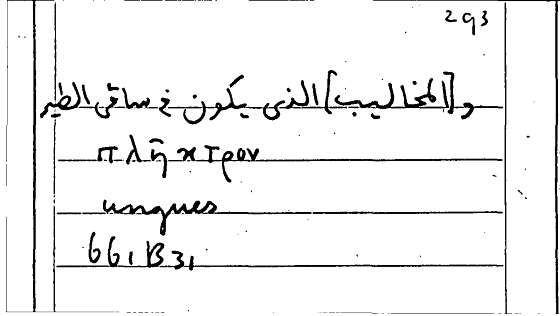 293
و[المخاليب] الذى يكون فى ساقى الطير
πλῆκτρον
ungues
661 B 31